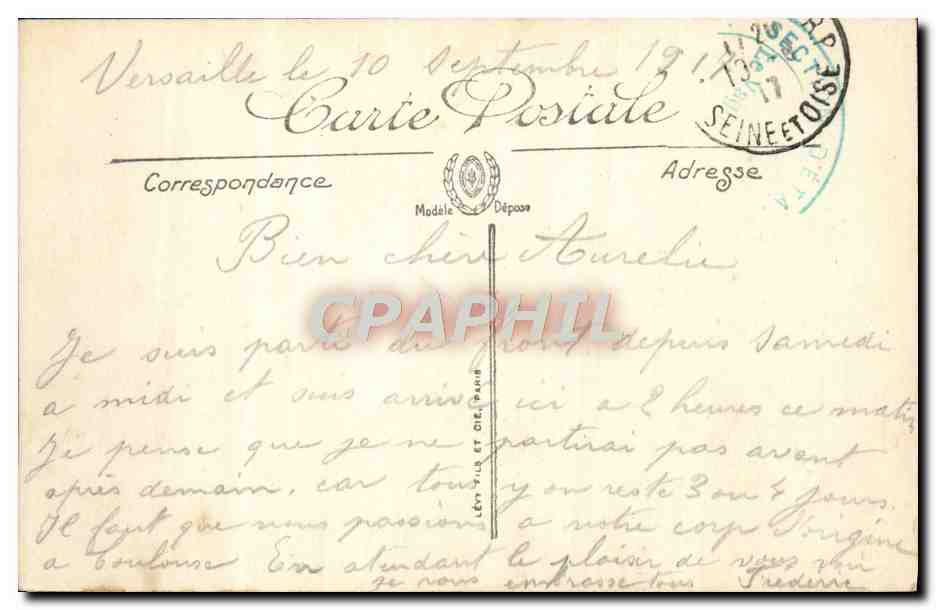 Versaille le 10 Septembre 1917
SECT
SEINE ET OISE
17
D'ÉTA
Carte Postale
Correspondance
Adresse
Modèle Déposé
Bien chère Aurelie
CPAPHIL
Je suis parti du front depuis Samedi
a midi et suis arrivé ici a 2 heures ce matin
Je pense que je ne partirai pas avant
après demain, car tous y on reste 3 ou 4 jours.
Il faut que nous passions a notre corp d'origine
a Toulouse En atendant le plaisir de vous voir
je vous embrasse tous Frederic
LÉVY FILS ET CIE, PARIS